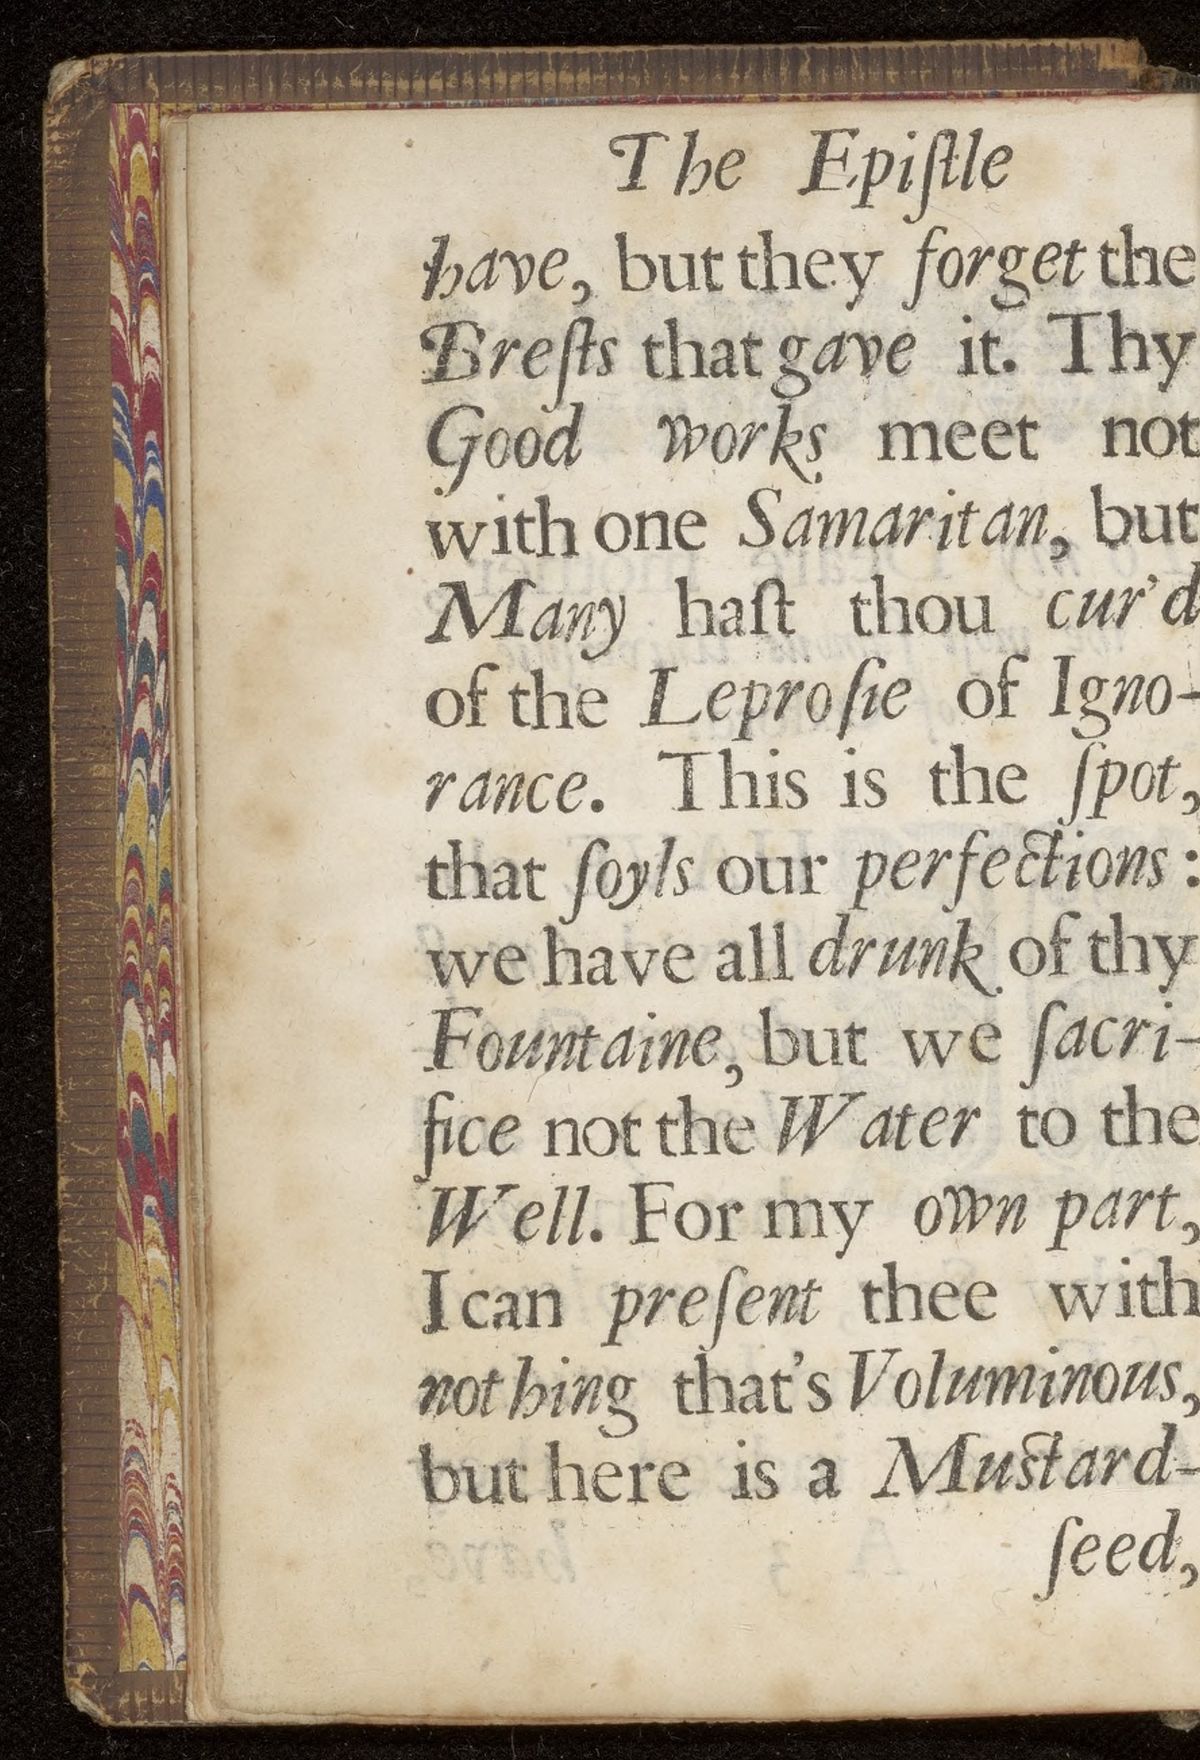 The Epiſtle
have, but they forget the
Breſts that gave it. Thy
Good works meet not
with one Samaritan, but
Many haſt thou cur'd
of the Leproſie of Igno-
rance. This is the ſpot,
that ſoyls our perfections:
we have all drunk of thy
Fountaine, but we ſacri-
fice not the Water to the
Well. For my own part,
I can preſent thee with
nothing that's Voluminous,
but here is a Mustard-
ſeed,